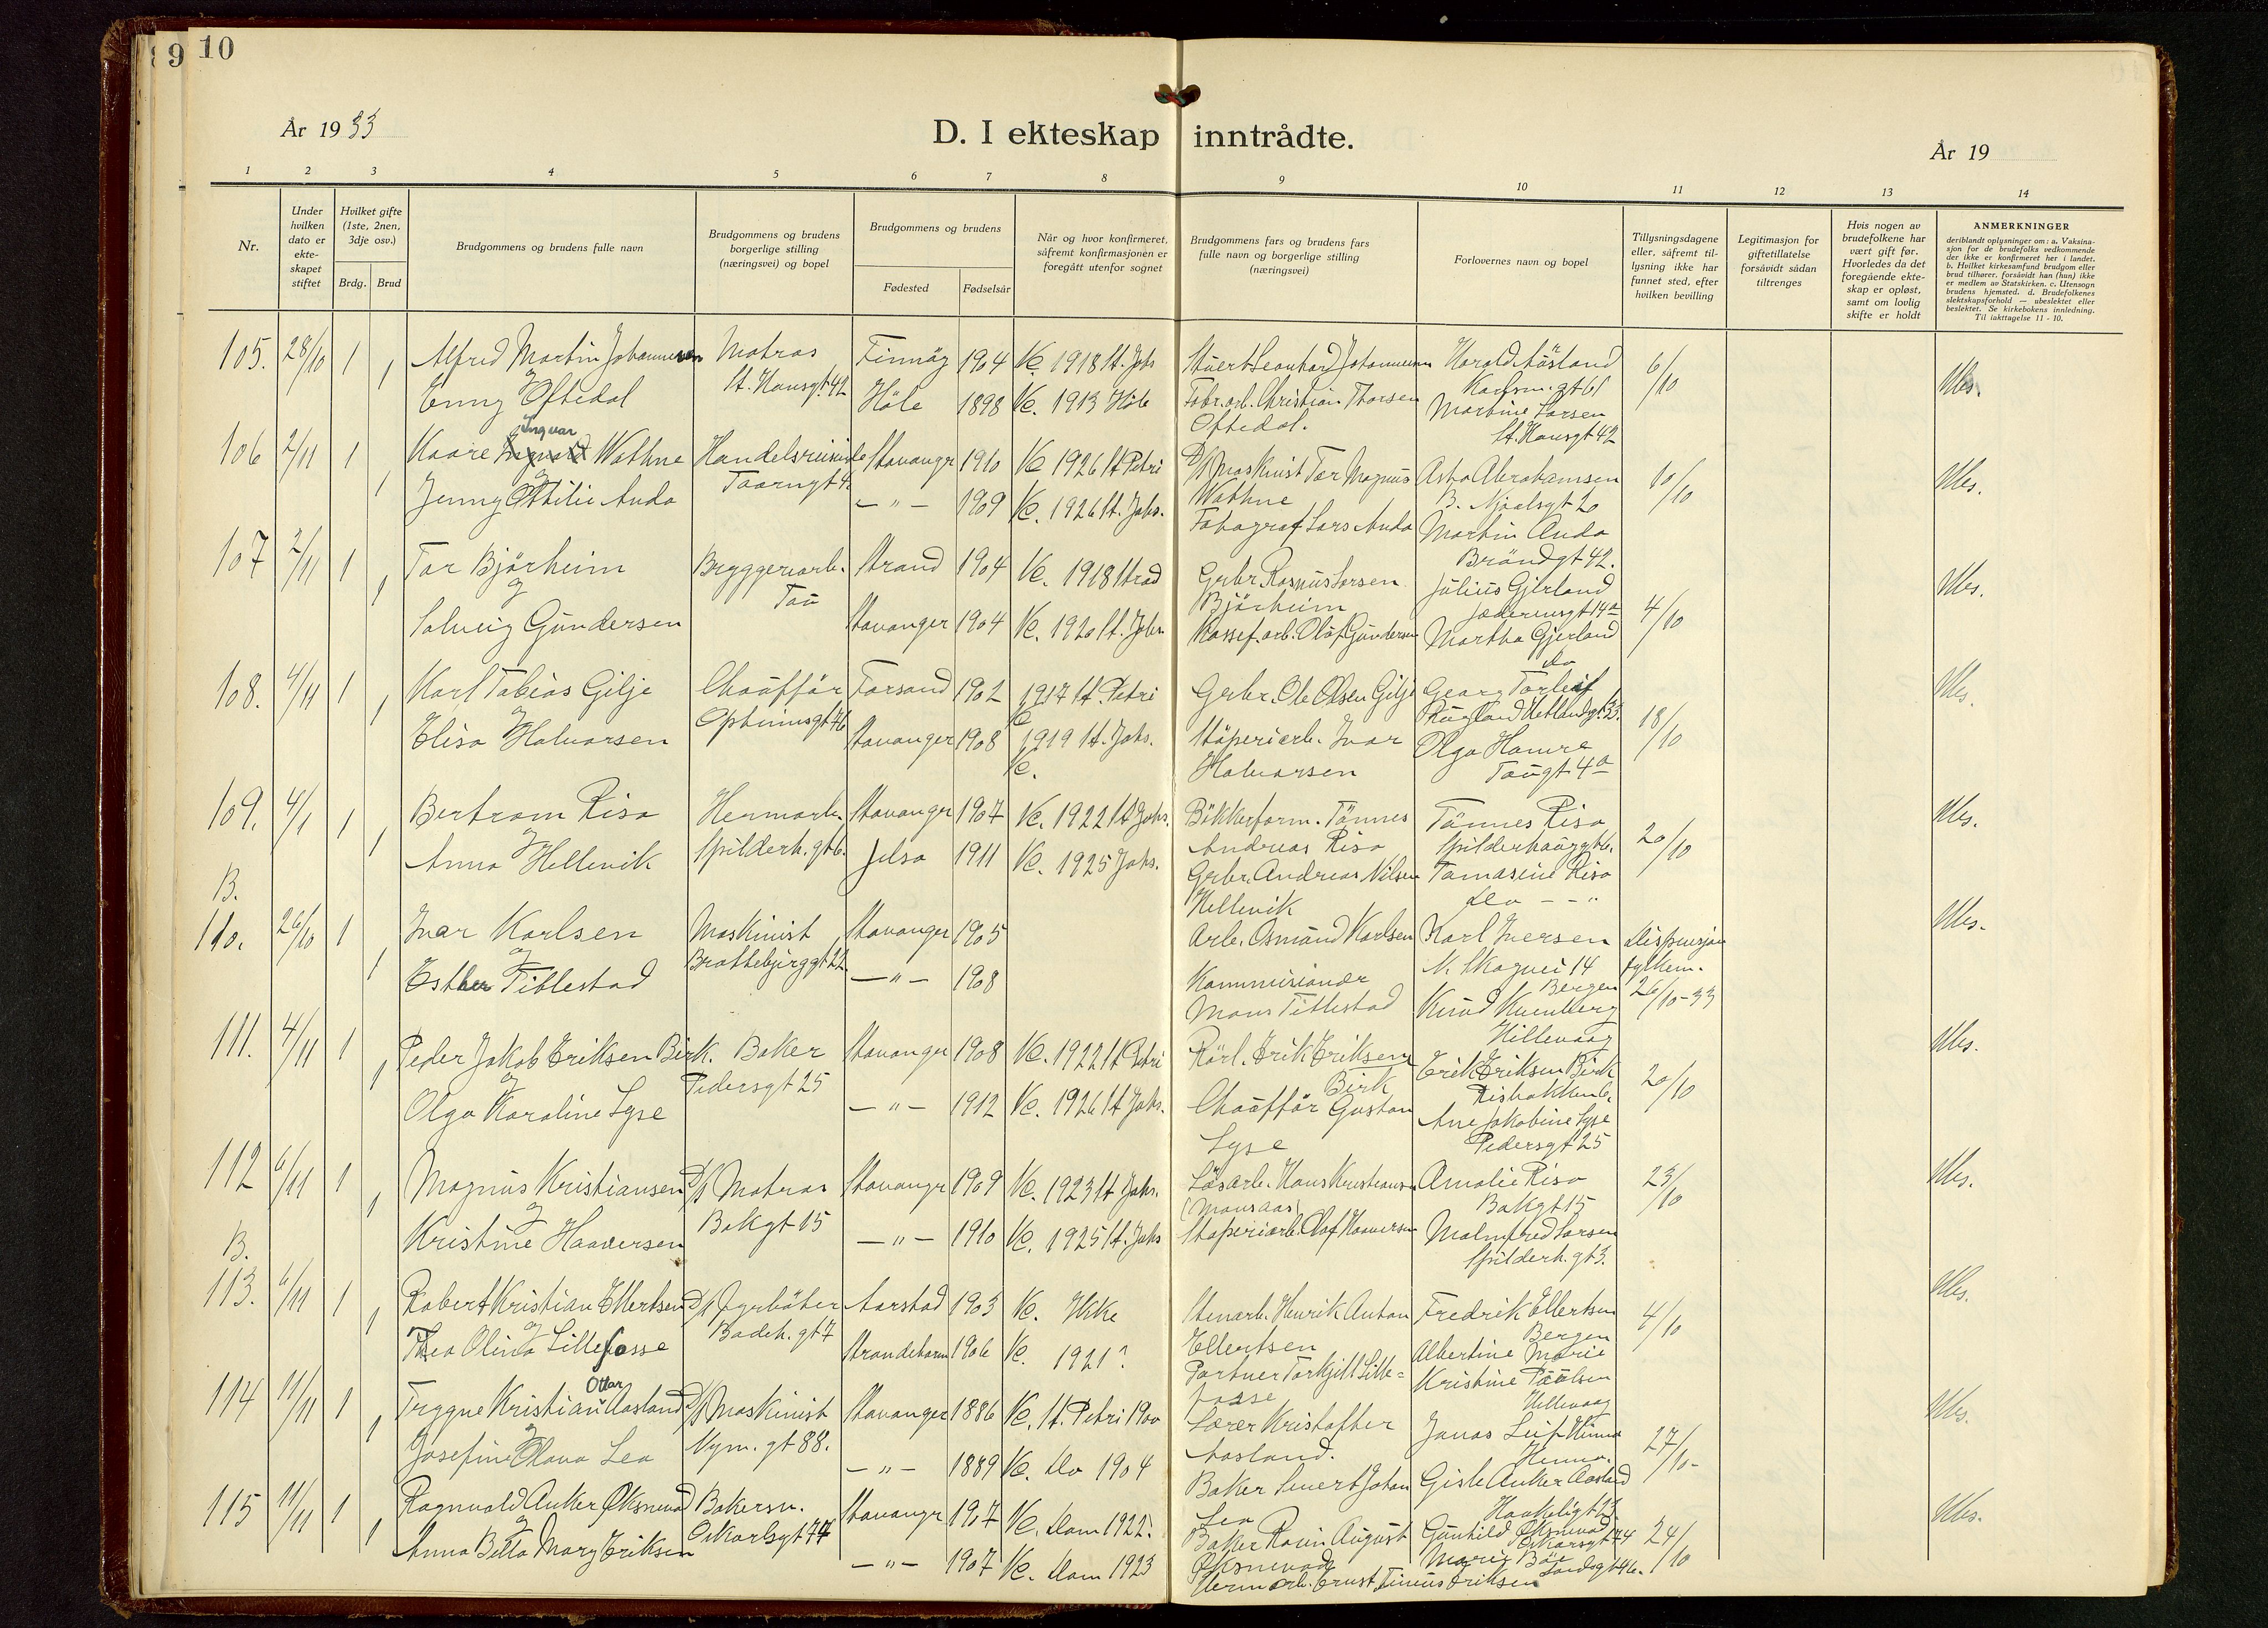 9 10
År 1933
D. I ekteskap inntrådte.
År 19
1 2 3 4 5 6 7 8 9 10 11 12 13 14
Nr.
Under hvilken dato er ekte-skapet stiftet
Hvilket gifte (1ste, 2nen, 3dje osv.)
Brdg. Brud
Brudgommens og brudens fulle navn
Brudgommens og brudens borgerlige stilling (næringsvei) og bopel
Brudgommens og brudens
Fødested Fødselsår
Når og hvor konfirmeret, såfremt konfirmasjonen er foregått utenfor sognet
Brudgommens fars og brudens fars fulle navn og borgerlige stilling (næringsvei)
Forlovernes navn og bopel
Tillysningsdagene eller, såfremt til-lysning ikke har funnet sted, efter hvilken bevilling
Legitimasjon for giftetillatelse forsåvidt sådan tiltrenges
Hvis nogen av brudefolkene har vært gift før. Hvorledes da det foregående ekte-skap er opløst, samt om lovlig skifte er holdt
ANMERKNINGER
deriblandt oplysninger om: a. Vaksina-sjon for de brudefolks vedkommende der ikke er konfirmeret her i landet. b. Hvilket kirkesamfund brudgom eller brud tilhører, forsåvidt han (hun) ikke er medlem av Statskirken. c. Utensogn brudens hjemsted. d. Brudefolkenes slektskapsforhold — ubeslektet eller beslektet. Se kirkebokens innledning. Til iakttagelse 11 - 10.
105. 28/10 1 Alfred Martin Johannessen Matros Finnöy 1904 Ve. 1918 St. Johs Stuert Leonhard Johannessen Harald Aasland 6/10 Ubs.
og St. Hansgt. 42 Karlsm. gt 61
1 Enny Oftedal Höle 1898 Ve. 1913 Höle Fabr.arb. Christian Thorsen Martine Larsen
Oftedal. St. Hansgt 42
106 2/11 1 Kaare Ingvar Wathne Handelsreisende Stavanger 1910 Ve 1926 St Petri D/S Maskinist Tor Magnus Asta Abrahamsen 10/10 Ubs.
og Taarngt 4 Wathne B. Njaalsgt 20
1 Jenny Ottilie Anda -"- 1909 Ve. 1926 St. Johs. Fotograf Lars Anda Martin Anda
Bröndgt 42.
107 2/11 1 Tor Björheim Bryggeriarb. Strand 1904 Ve. 1918 Strad Grbr. Rasmus Larsen Julius Gjerland 4/10 Ubs.
og Tau Björheim Jæderensgt 14a
1 Solveig Gundersen Stavanger 1904 Ve. 1920 St. Johs. Kassef.arb. Olaf Gundersen Martha Gjerland
do
108. 4/11 1 Karl Tobias Gilje Chaufför Forsand 1902 1917 St. Petri Ve Grbr. Ole Olsen Gilje Georg Torleif 18/10 Ubs.
og Optimusgt 46 Rugland Hetlandgt. 33.
1 Elisa Halvorsen Stavanger 1908 1919 St. Johs. Ve. Stöperiarb. Ivar Olga Hamre
Halvorsen Taugt 4a
109. 4/1 1 Bertram Risa Hermarb. Stavanger 1907 Ve. 1922 St Johs. Bökkerform. Tönnes Tönnes Risa 20/10 Ubs.
og Spilderh. gt 6. Andreas Risa Spilderhauggt 6.
1 Anna Hellevik Jelsa 1911 Ve. 1925 Johs. Grbr. Andreas Nilsen Tomasine Risa
B. Hellevik do --"
110. 26/10 1 Ivar Karlsen Maskinist Stavanger 1905 Arb. Osmund Karlsen Karl Iversen Dispensjon Ubs.
og Brattebjerggt 22 N. Skagvei 14 fylkem.
1 Esther Titlestad -"- 1908 Kommisionær Bergen 26/10-33
Mons Titlestad Knud Kvenberg
Hillevaag
111. 4/11 1 Peder Jakob Eriksen Birk. Baker Stavanger 1908 Ve. 1922 St Petri Rörl. Erik Eriksen Erik Eriksen Birk 20/10 Ubs.
og Pedersgt 25 Birk Risbakken 6.
1 Olga Karoline Lyse -"- 1912 Ve. 1926 St Johs. Chaufför Gustav Ane Jakobine Lyse
Lyse Pedersgt 25
112 6/11 1 Magnus Kristiansen D/S Matros Stavanger 1909 Ve. 1923 St Johs. Lösarb. Hans Kristiansen Amalie Risa 23/10 Ubs.
og Bakgt 15 (Monsaas) Bakgt 15
1 Kristine Haaversen -"- 1910 Ve. 1925 St. Johs Stöperiarb. Olaf Haaversen Malmfred Larsen
B. Spilderh. gt 3.
113. 6/11 1 Robert Kristian Ellertsen D/S Fyrböter Aarstad 1903 Ve. Ikke Stenarb. Henrik Anton Fredrik Ellertsen 4/10 Ubs.
og Badeh. gt 7 Ellertsen Bergen
1 Thea Olina Lillefosse Strandebarm 1906 Ve. 1921? Partner Torkjell Lille= Albertine Marie
fosse Kristine Paulsen
Hillevaag
114 11/11 1 Trygve Kristian Ottar Aasland D/S Maskinist Stavanger 1886 Ve. St. Petri 1900 Lærer Kristoffer Jonas Leif Hinna 27/10- Ubs.
og Nym. gt 88. Aasland. Hinna.
1 Josefine Olava Lea -"- 1889 Ve. Do 1904 Baker Sivert Johan Gisle Anker Aasland
Lea Haukeligt 23.
115 11/11 1 Ragnvald Anker Øksnevad Bakersv. Stavanger 1907 Ve. Dom 1922. Baker Rasin August Gunhild Øksnevad 24/10 Ubs.
og Oskarlsgt 74 Øksnevad Oskarsgt 74
1 Anna Betla Mary Eriksen -"- 1907 Ve. Dom 1923 Herm arb. Ernst Tinius Eriksen Marie Böe
Sandsgt 46.